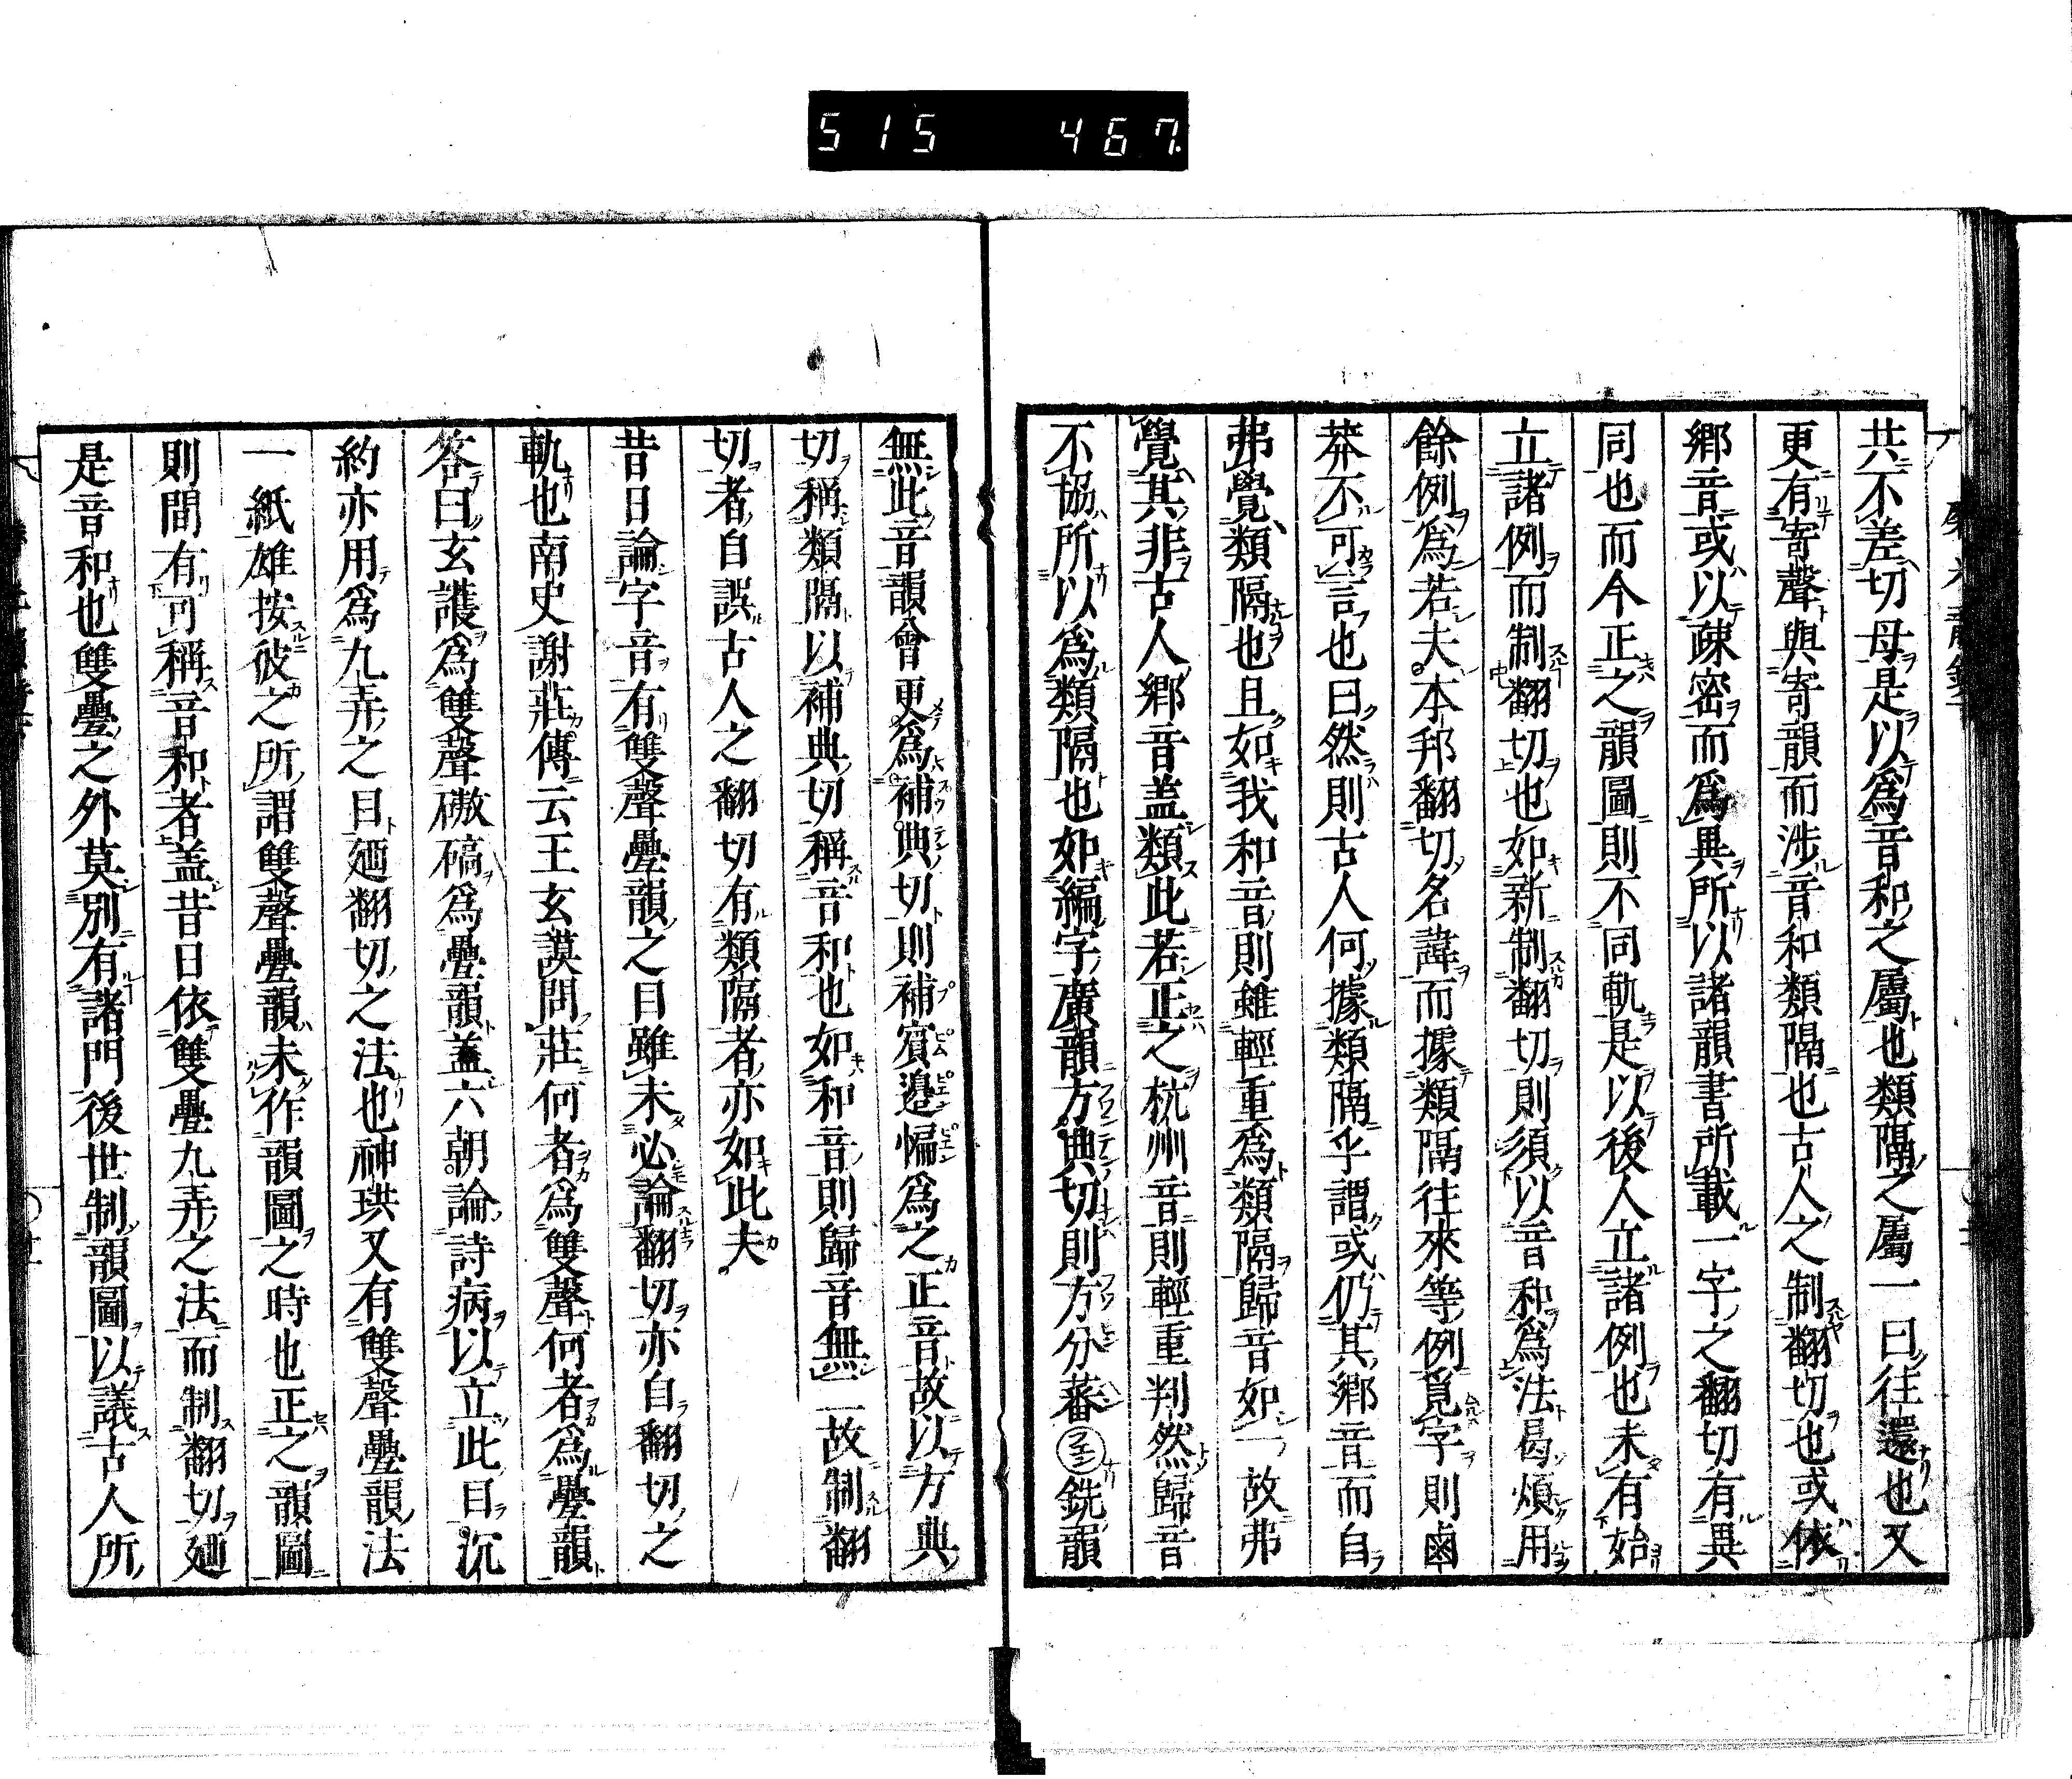 515 467
共不差切母是以爲音和之屬也類隔之屬一曰往還也又
更有寄聲與寄韻而渉音和類隔也古人之制翻切也或依
鄉音或以疎密而爲異所以諸韻書所載一字之翻切有異
同也而今正之韻圖則不同軌是以後人立諸例也未有始
立諸例而制翻切也如新制翻切則須以音和爲法曷煩用
餘例爲若夫本邦翻切名諱而據類隔往來等例覓字則鹵
莽不可言也曰然則古人何據類隔乎謂或仍其鄉音而自
弗覺類隔也且如我和音則雖輕重爲類隔歸音如一故弗
覺其非古人鄉音盖類此若正之杭州音則輕重判然歸音
不協所以爲類隔也如編字廣韻方典切則方分蕃 銑韻
無此音韻會更爲補典切則補賓邉惼爲之正音故以方典
切稱類隔以補典切稱音和也如和音則歸音無二故制翻
切者自誤古人之翻切有類隔者亦如此夫
昔日論字音有雙聲疊韻之目雖未必論翻切亦自翻切之
軌也南史謝莊傳云王玄謨問莊何者爲雙聲何者爲疊韻
答曰玄護爲雙聲磝碻爲疊韻盖六朝論詩病以立此目沉
約亦用爲九弄之目廼翻切之法也神珙又有雙聲疊韻法
一紙雄按彼之所謂雙聲疊韻未作韻圖之時也正之韻圖
則間有可稱音和者盖昔日依雙疊九弄之法而制翻切廼
是音和也雙疊之外莫別有諸門後世制韻圖以議古人所